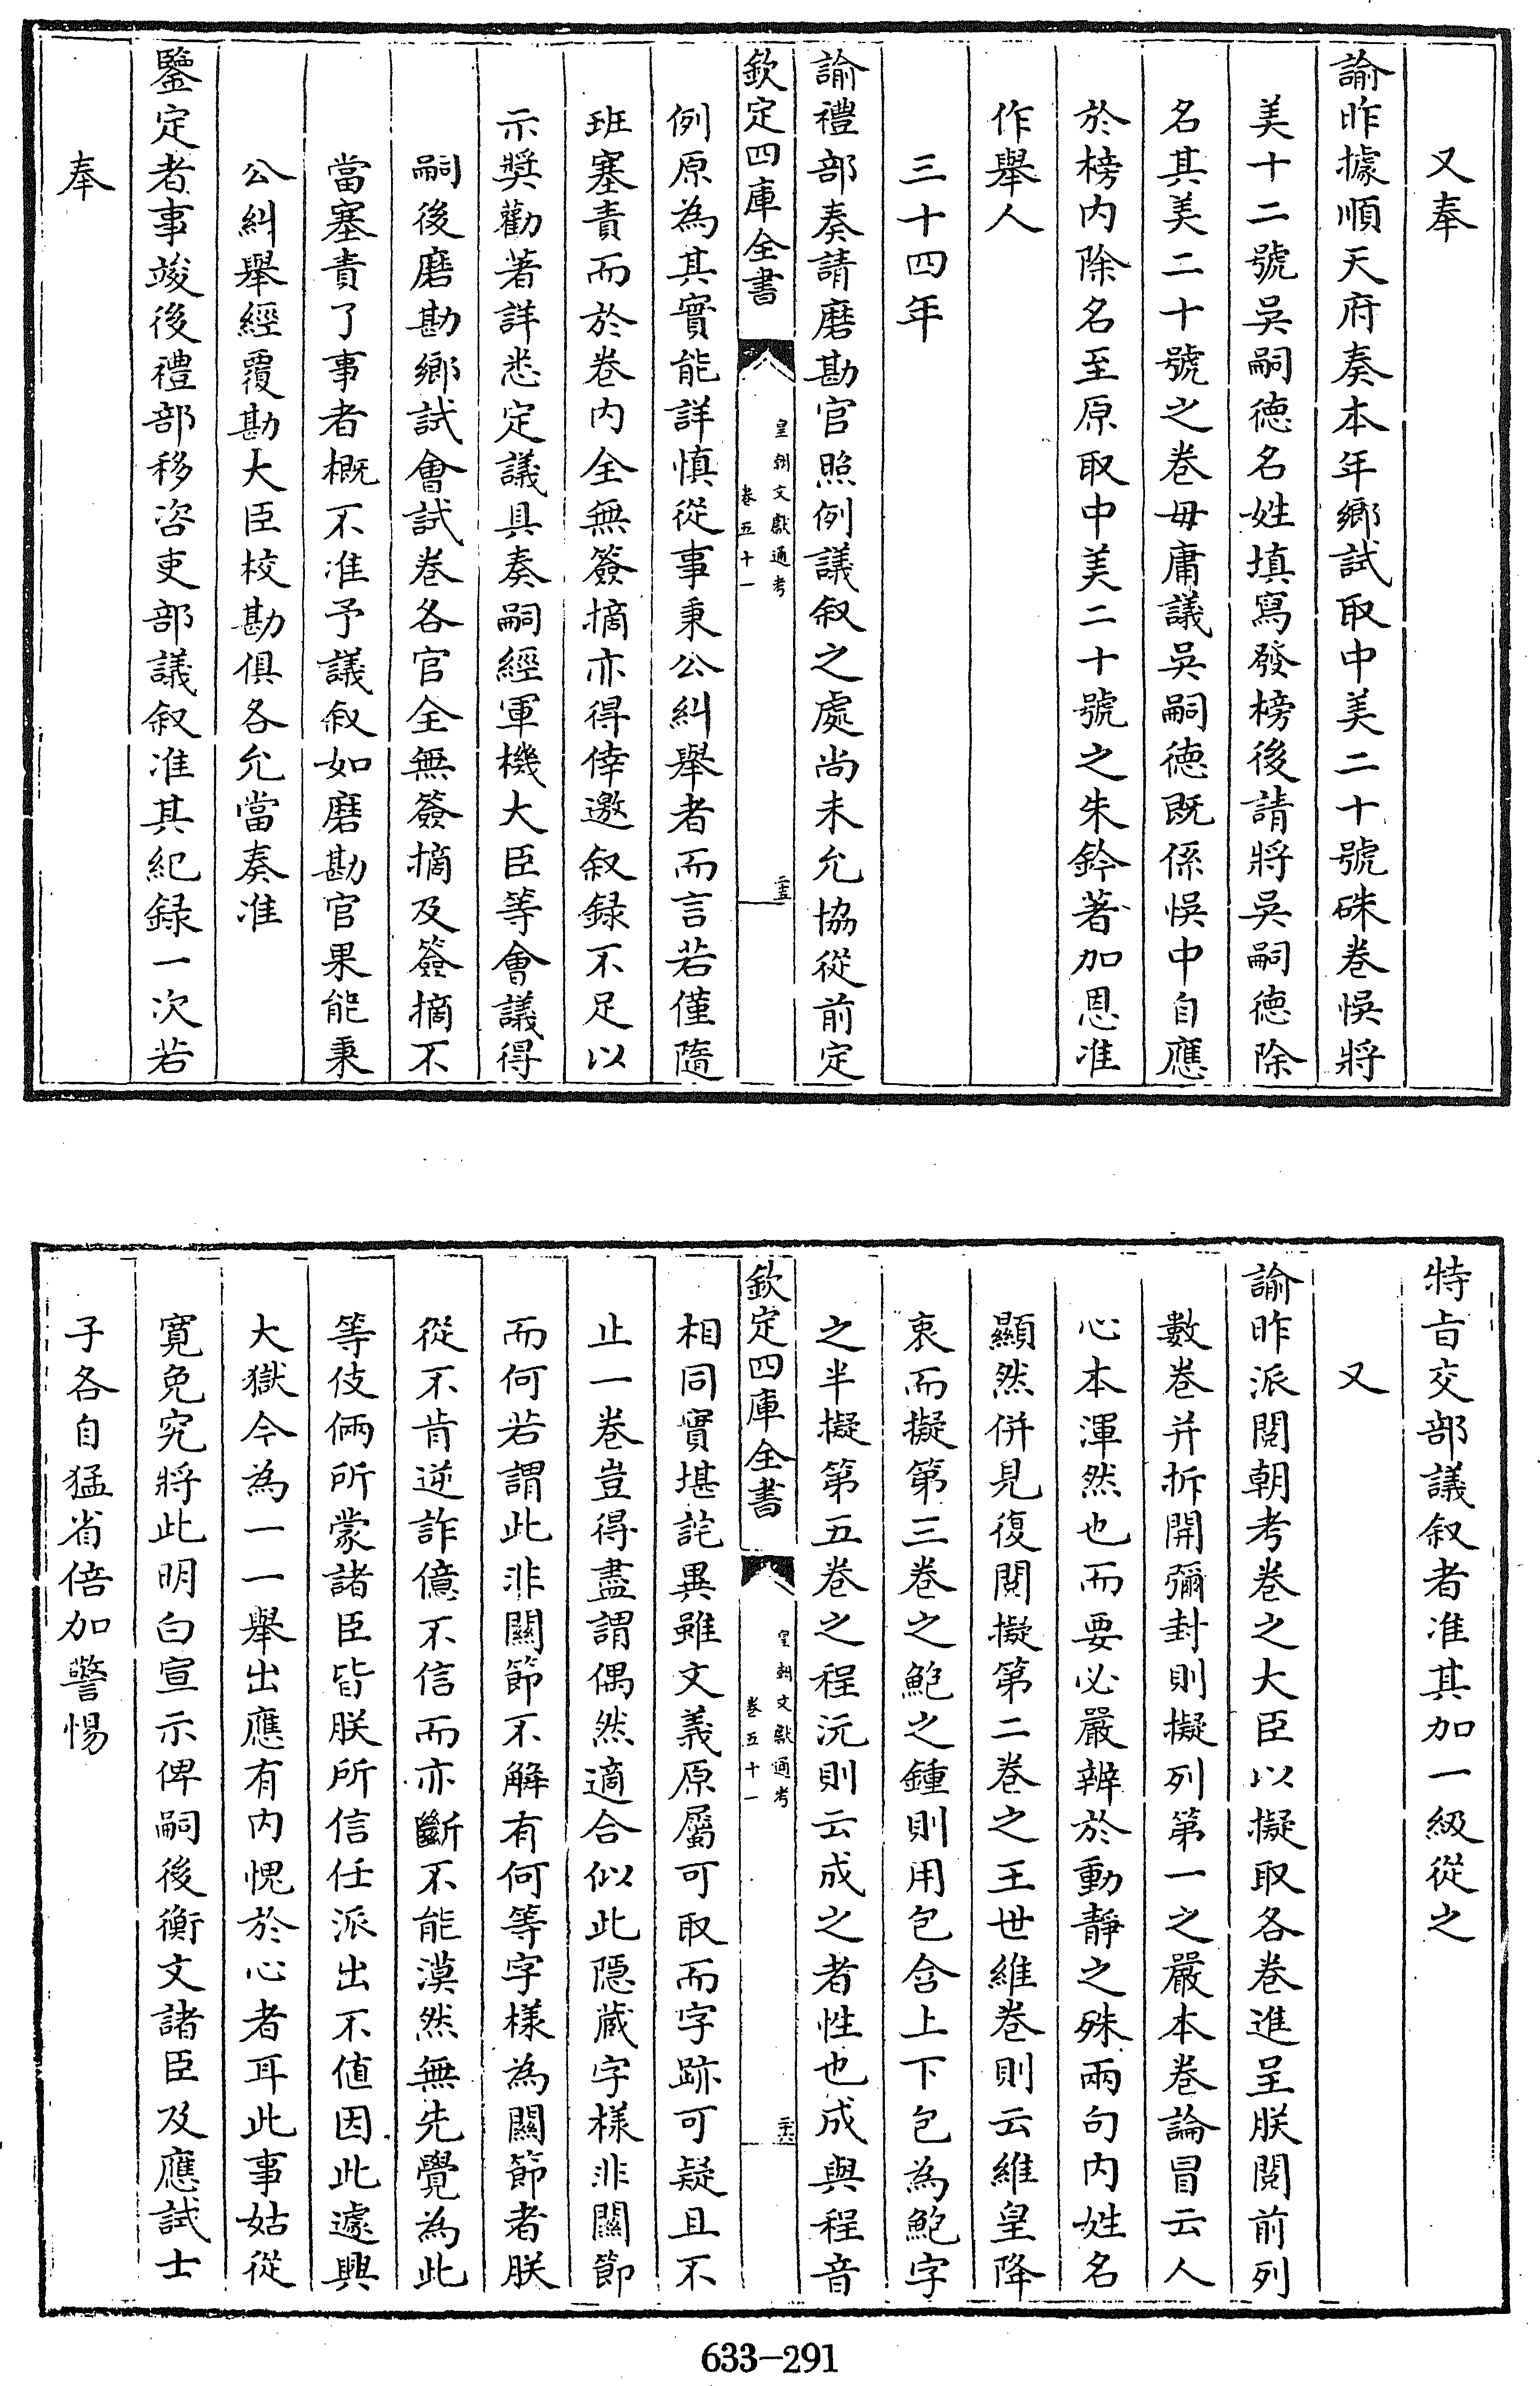 又奉
諭昨據順天府奏本年鄉試取中美二十號硃卷悞將
美十二號吳嗣徳名姓填寫發榜後請將吳嗣徳除
名其美二十號之卷毋庸議吳嗣徳既係悞中自應
於榜内除名至原取中美二十號之朱鈐著加恩准
作舉人
三十四年
諭禮部奏請磨勘官照例議叙之處尚未允協從前定
欽定四庫全書
皇朝文獻通考
卷五十一
二五
例原為其實能詳慎從事秉公糾舉者而言若僅隨
班塞責而於卷内全無簽摘亦得倖邀叙録不足以
示奬勸著詳悉定議具奏嗣經軍機大臣等會議得
嗣後磨勘鄉試會試卷各官全無簽摘及簽摘不
當塞責了事者概不准予議叙如磨勘官果能秉
公糾舉經覆勘大臣校勘俱各允當奏准
鑒定者事竣後禮部移咨吏部議叙准其紀録一次若
奉
特旨交部議叙者准其加一級從之
又
諭昨派閲朝考卷之大臣以擬取各卷進呈朕閲前列
數卷并拆開彌封則擬列第一之嚴本卷論冒云人
心本渾然也而要必嚴辨於動靜之殊兩句内姓名
顯然併見復閲擬第二卷之王世維卷則云維皇降
衷而擬第三卷之鮑之鍾則用包含上下包為鮑字
之半擬第五卷之程沅則云成之者性也成與程音
欽定四庫全書
皇朝文獻通考
卷五十一
二六
相同實堪詫異雖文義原屬可取而字跡可疑且不
止一卷豈得盡謂偶然適合似此隠蔵字様非關節
而何若謂此非關節不解有何等字様為關節者朕
從不肯逆詐億不信而亦斷不能漠然無先覺為此
等伎倆所蒙諸臣皆朕所信任派出不値因此遽興
大獄今為一一舉出應有内愧於心者耳此事姑從
寛免究將此明白宣示俾嗣後衡文諸臣及應試士
子各自猛省倍加警惕
633-291